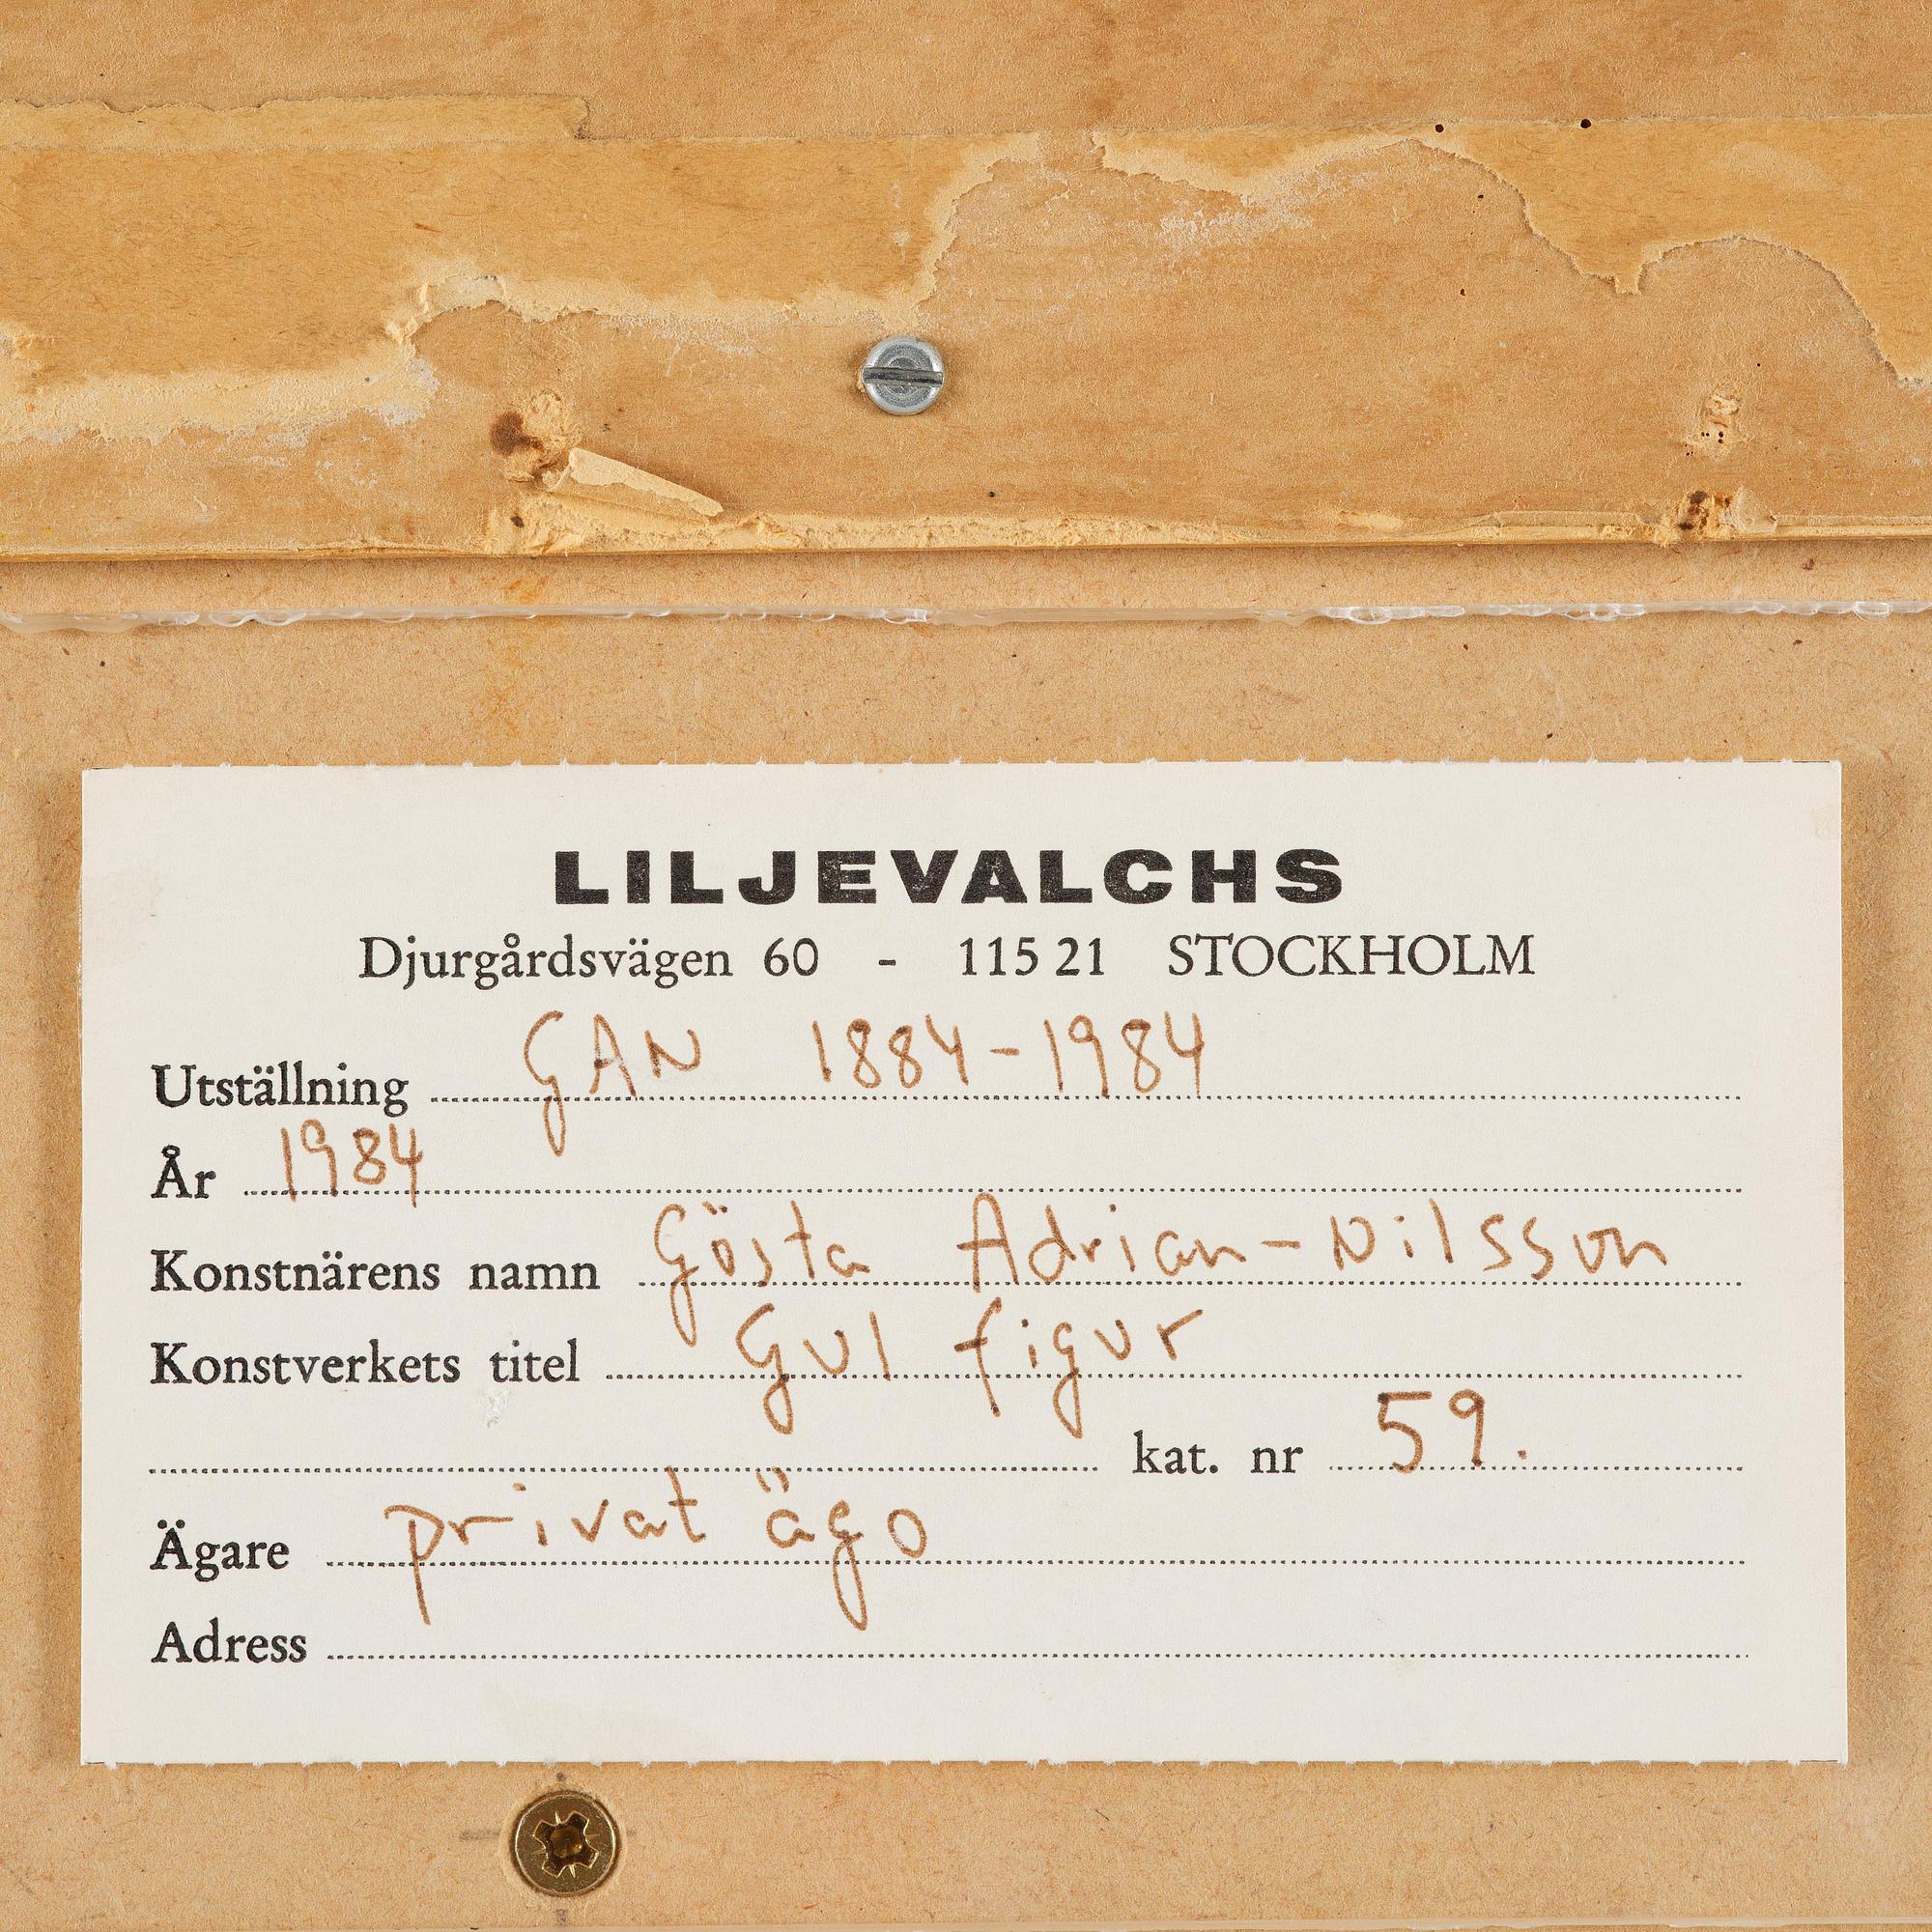 LILJEVALCHS
Djurgårdsvägen 60 - 115 21 STOCKHOLM
Utställning GAN 1884-1984
År 1984
Konstnärens namn Gösta Adrian-Nilsson
Konstverkets titel Gul figur
kat. nr 59.
Ägare privat ägo
Adress